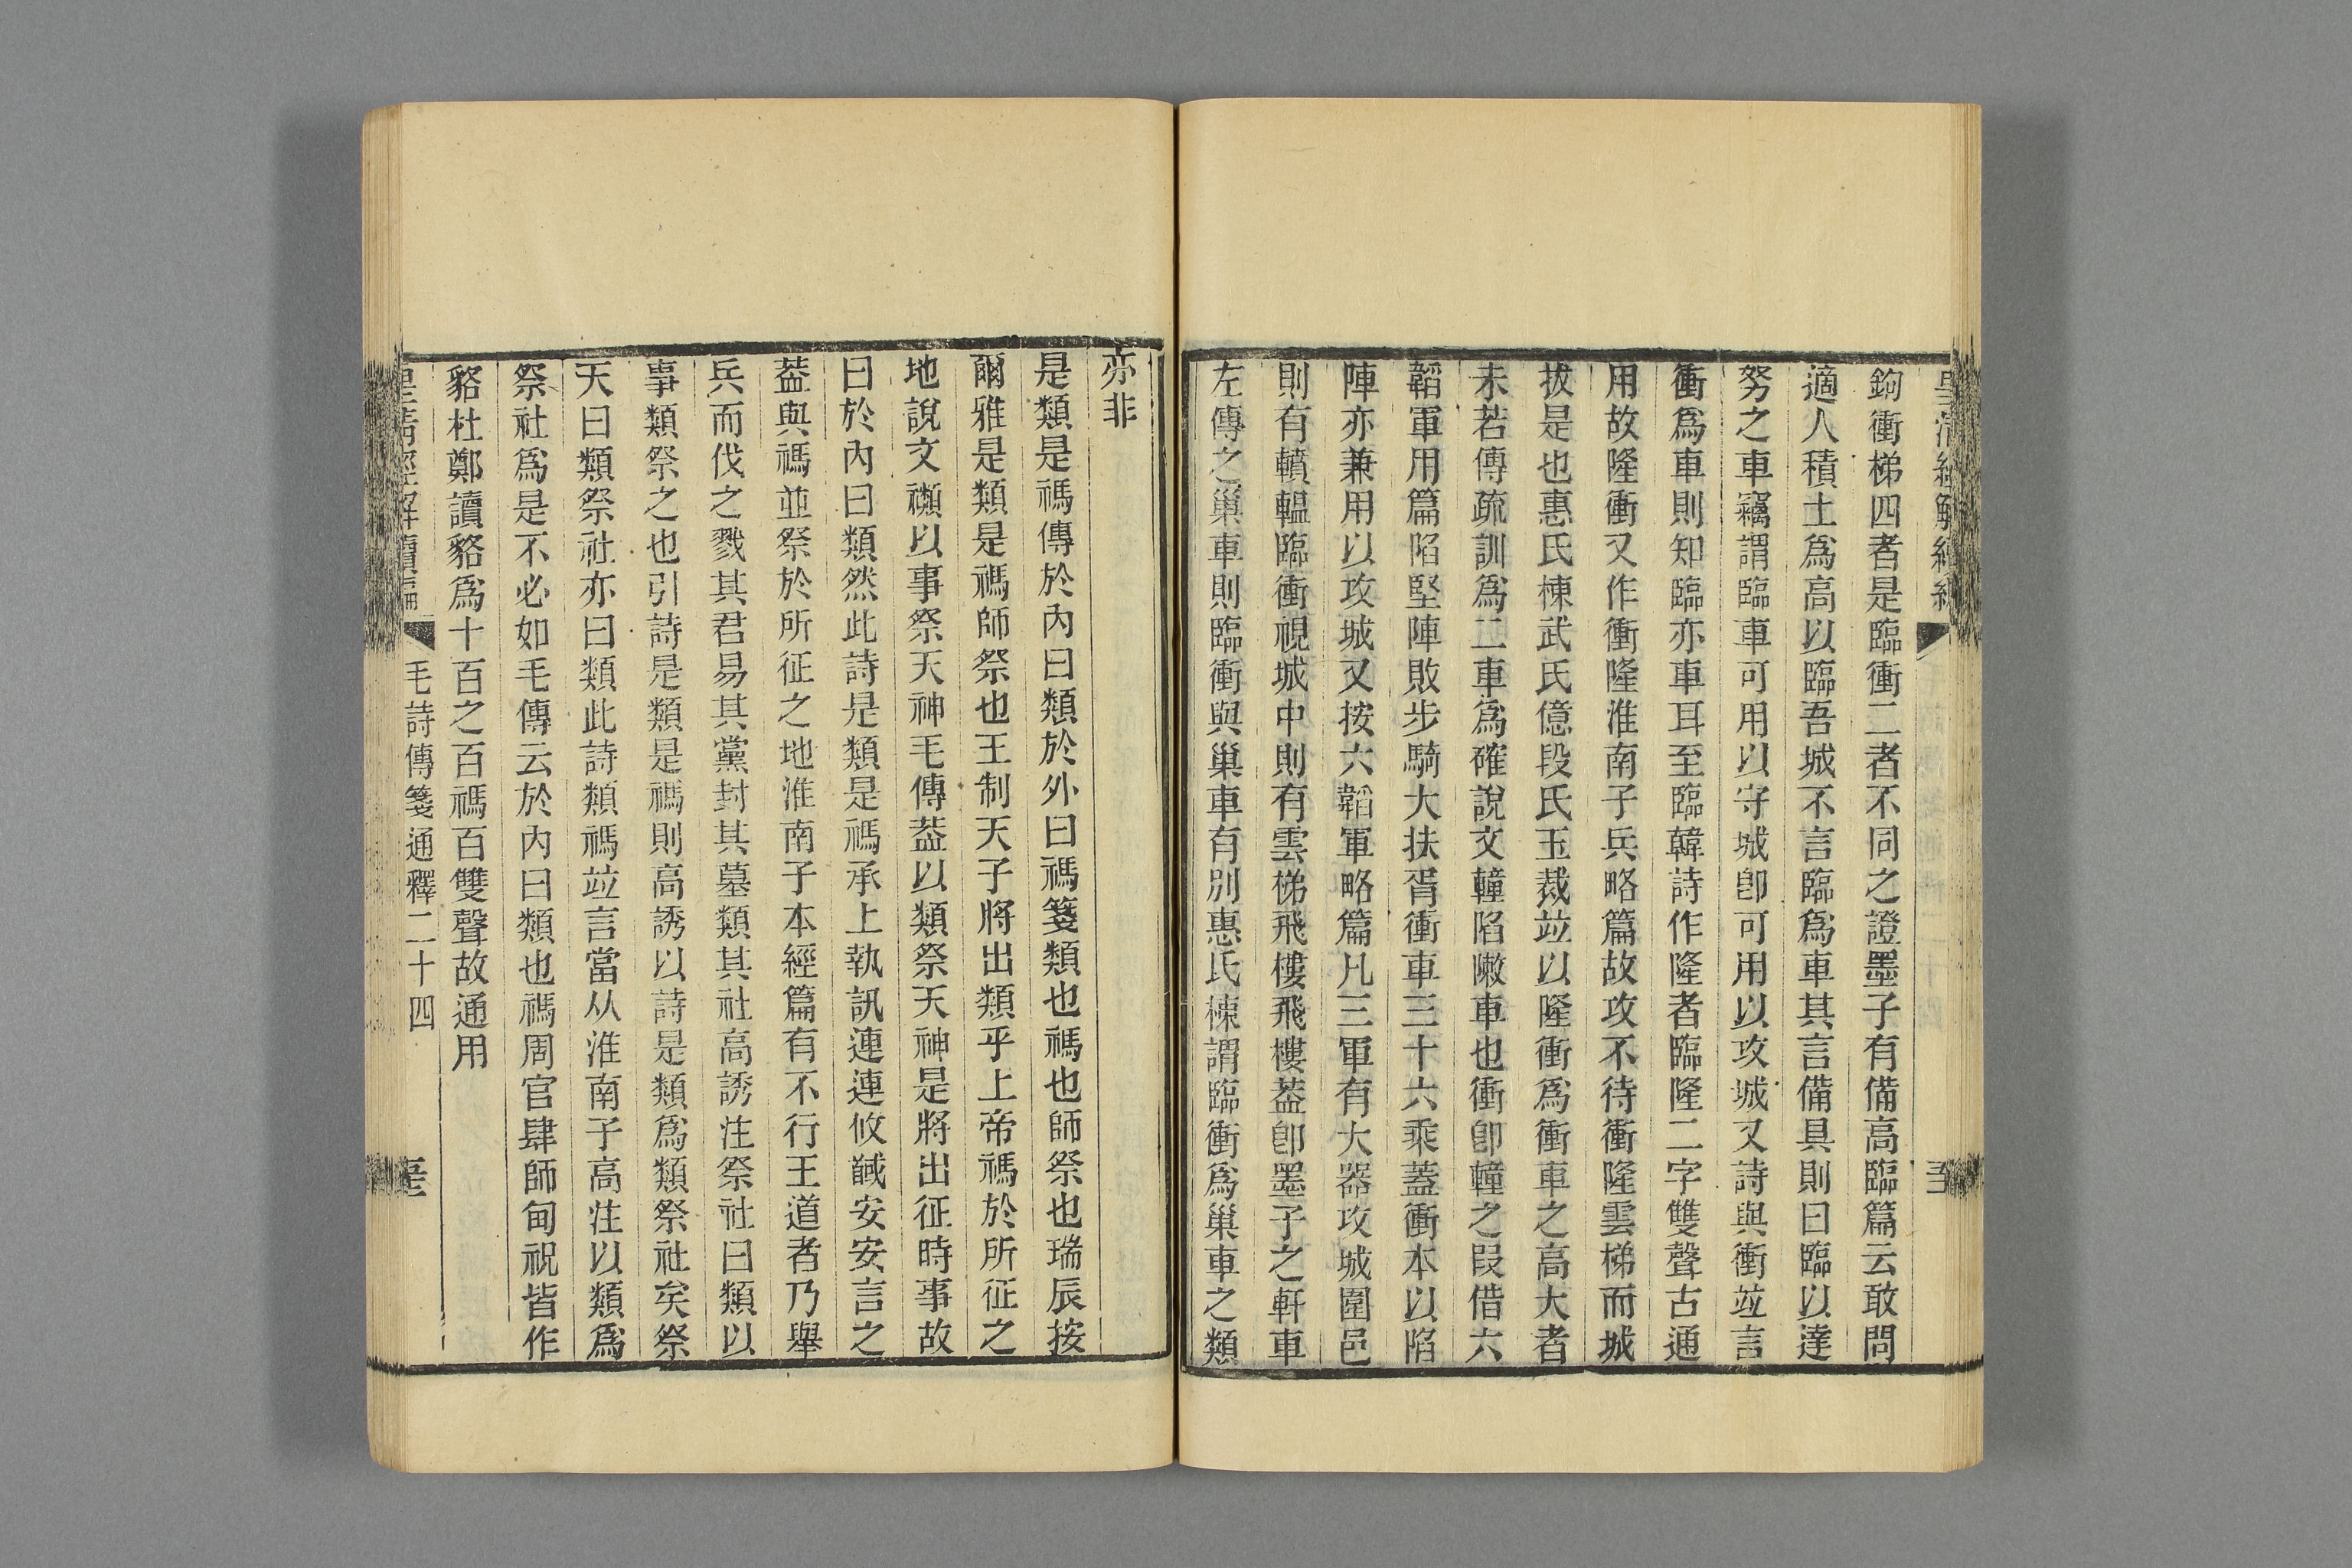 鉤衝梯四者是臨衝二者不同之證墨子有備高臨篇云敢問
適人積土爲高以臨吾城不言臨爲車其言備具則曰臨以達
努之車竊謂臨車可用以守城卽可用以攻城又詩與衝竝言
衝爲車則知臨亦車耳至臨韓詩作隆者臨隆二字雙聲古通
用故隆衝又作衝隆淮南子兵略篇故攻不待衝隆雲梯而城
拔是也惠氏棟武氏億段氏玉裁竝以隆衝爲衝車之高大者
未若傳疏訓爲二車爲確說文轒陷敶車也衝卽轒之叚借六
韜軍用篇陷堅陣敗步騎大扶胥衝車三十六乘蓋衝本以陷
陣亦兼用以攻城又按六韜軍略篇凡三軍有大器攻城圍邑
則有轒轀臨衝視城中則有雲梯飛樓飛樓葢卽墨子之軒車
左傳之巢車則臨衝與巢車有別惠氏棟謂臨衝爲巢車之類
亦非
是類是禡傳於內曰類於外曰禡箋類也禡也師祭也瑞辰按
爾雅是類是禡師祭也王制天子將出類乎上帝禡於所征之
地說文禷以事祭天神毛傳葢以類祭天神是將出征時事故
曰於內曰類然此詩是類是禡承上執訊連連攸馘安安言之
葢與禡並祭於所征之地淮南子本經篇有不行王道者乃舉
兵而伐之戮其君易其黨封其墓類其社高誘注祭社曰類以
事類祭之也引詩是類是禡則高誘以詩是類爲類祭社矣祭
天曰類祭社亦曰類此詩類禡竝言當从淮南子高注以類爲
祭社爲是不必如毛傳云於內曰類也禡周官肆師甸祝皆作
貉杜鄭讀貉爲十百之百禡百雙聲故通用
皇清經解續編 毛詩傳箋通釋二十四